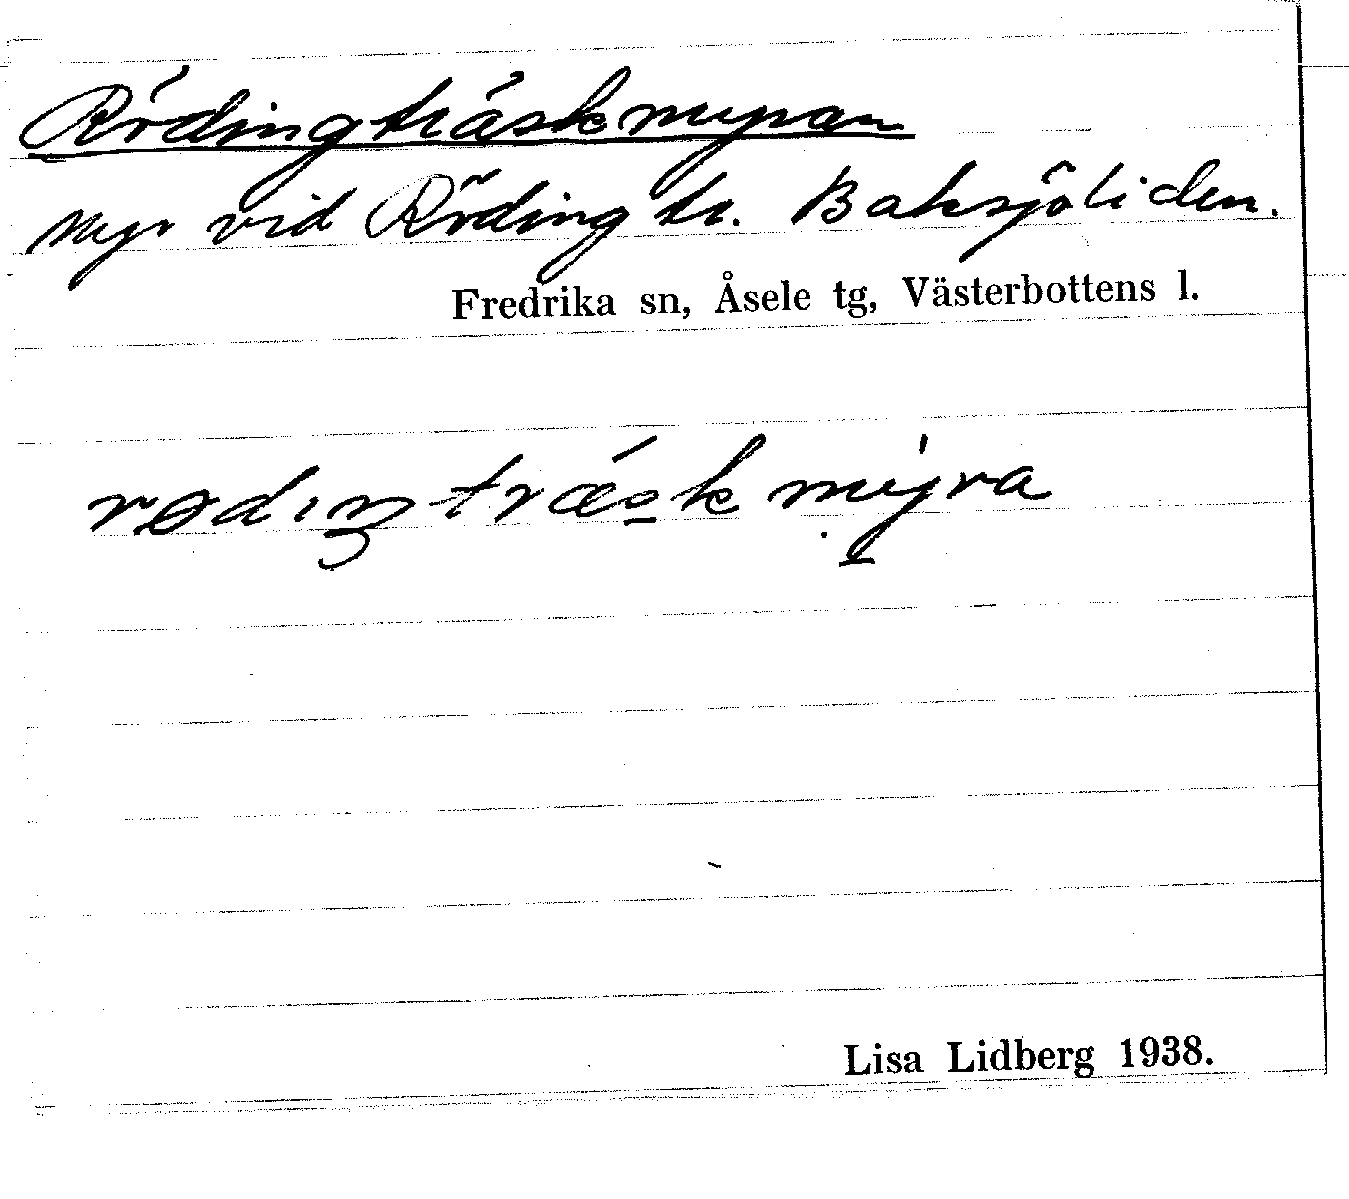 Rödingträskmyran
Myr vid Röding tr. Baksjöliden.
Fredrika sn, Åsele tg, Västerbottens l.
rødıŋtræskmyra
Lisa Lidberg 1938.